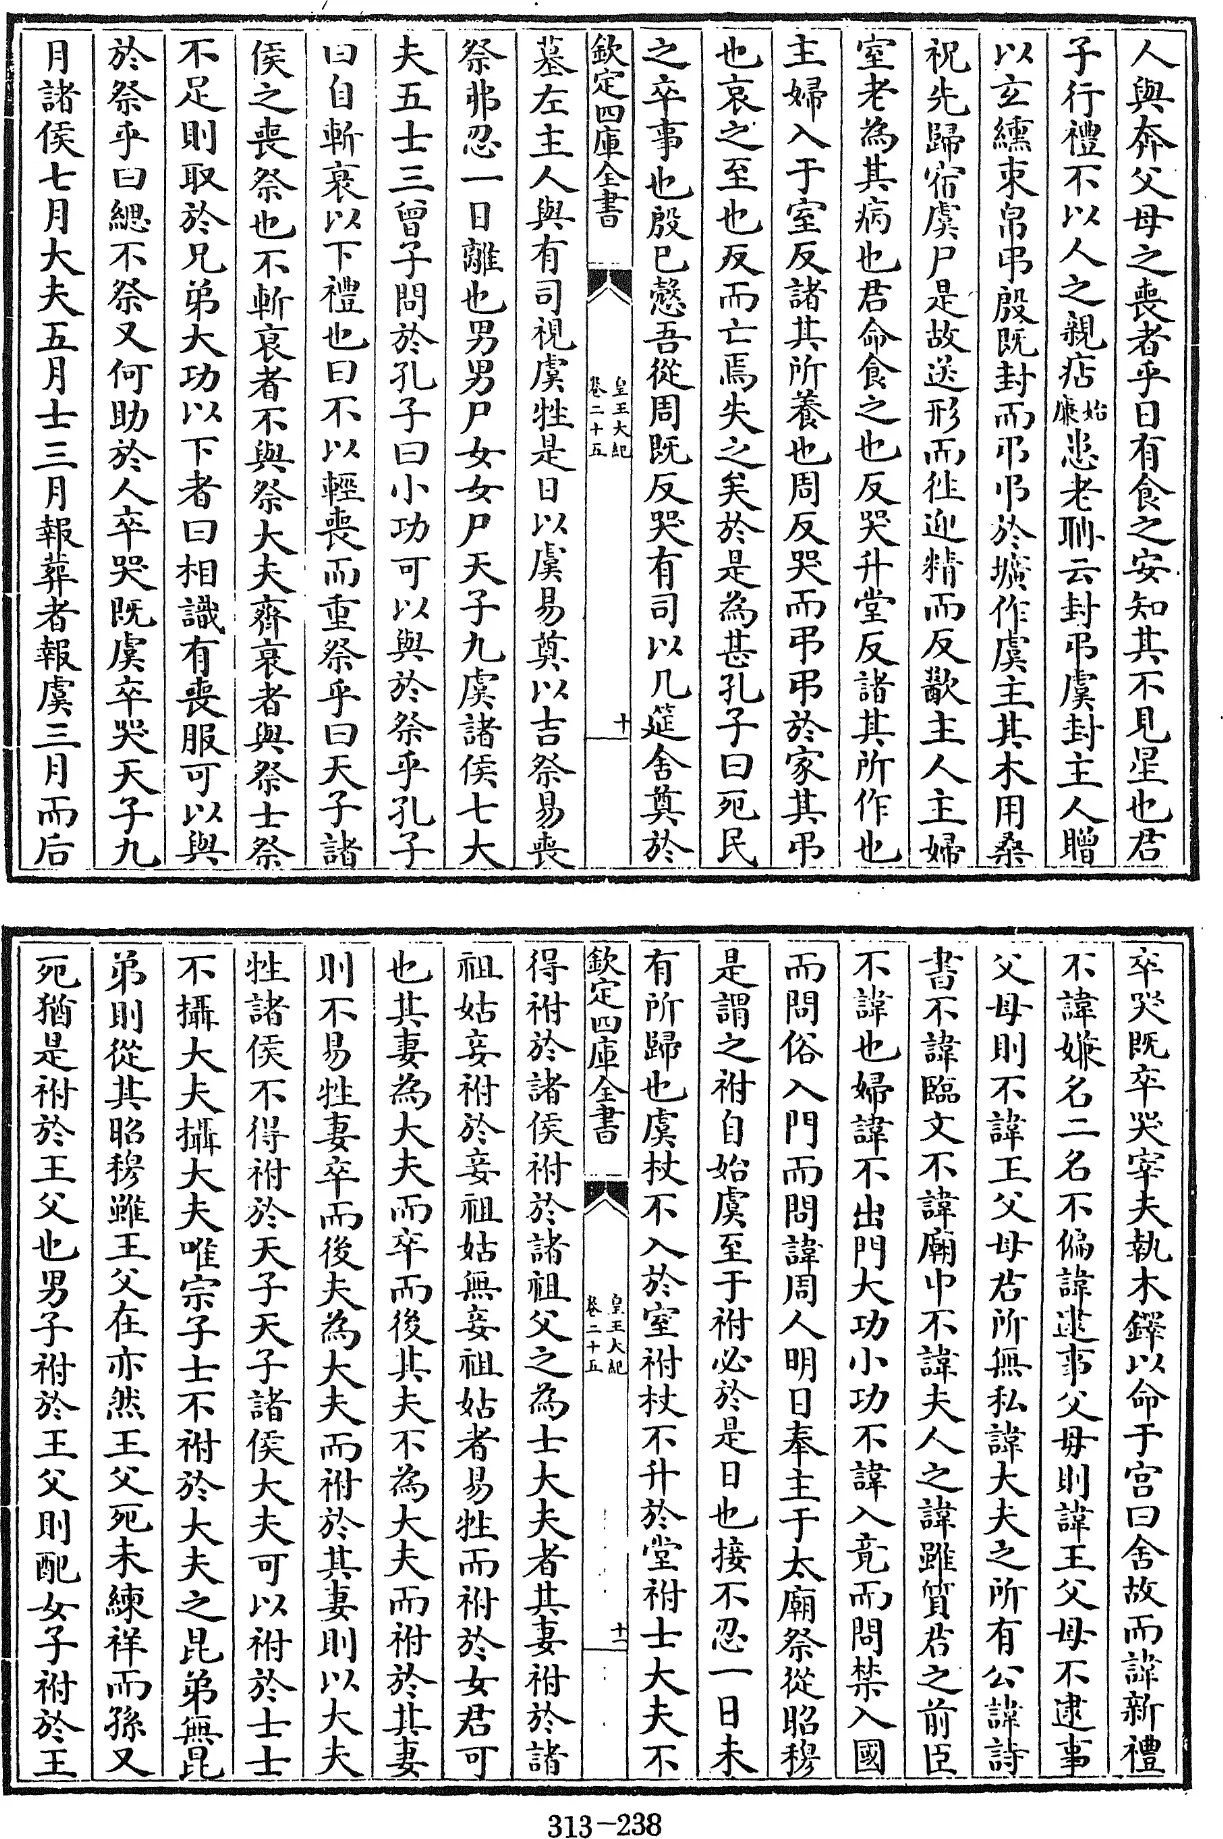 人與奔父母之喪者乎曰有食之安知其不見星也君
子行禮不以人之親痁始廉患老耼云封弔虞封主人贈
以玄纁束帛弔殷既封而弔弔於壙作虞主其木用桑
祝先歸宿虞尸是故送形而往迎精而反歠主人主婦
室老為其病也君命食之也反哭升堂反諸其所作也
主婦入于室反諸其所養也周反哭而弔弔於家其弔
也哀之至也反而亡焉失之矣於是為甚孔子曰死民
之卒事也殷已慤吾從周既反哭有司以几筵舍奠於
欽定四庫全書
皇王大紀
卷二十五
十
墓左主人與有司視虞牲是日以虞易奠以吉祭易喪
祭弗忍一日離也男男尸女女尸天子九虞諸侯七大
夫五士三曾子問於孔子曰小功可以與於祭乎孔子
曰自斬衰以下禮也曰不以輕喪而重祭乎曰天子諸
侯之喪祭也不斬衰者不與祭大夫齊衰者與祭士祭
不足則取於兄弟大功以下者曰相識有喪服可以與
於祭乎曰緦不祭又何助於人卒哭既虞卒哭天子九
月諸侯七月大夫五月士三月報葬者報虞三月而后
卒哭既卒哭宰夫執木鐸以命于宫曰舍故而諱新禮
不諱嫌名二名不偏諱逮事父母則諱王父母不逮事
父母則不諱王父母君所無私諱大夫之所有公諱詩
書不諱臨文不諱廟中不諱夫人之諱雖質君之前臣
不諱也婦諱不出門大功小功不諱入竟而問禁入國
而問俗入門而問諱周人明日奉主于太廟祭從昭穆
是謂之祔自始虞至于祔必於是日也接不忍一日未
有所歸也虞杖不入於室祔杖不升於堂祔士大夫不
欽定四庫全書
皇王大紀
卷二十五
十一
得祔於諸侯祔於諸祖父之為士大夫者其妻祔於諸
祖姑妾祔於妾祖姑無妾祖姑者易牲而祔於女君可
也其妻為大夫而卒而後其夫不為大夫而祔於其妻
則不易牲妻卒而後夫為大夫而祔於其妻則以大夫
牲諸侯不得祔於天子天子諸侯大夫可以祔於士士
不攝大夫攝大夫唯宗子士不祔於大夫之昆弟無昆
弟則從其昭穆雖王父在亦然王父死未練祥而孫又
死猶是祔於王父也男子祔於王父則配女子祔於王
313-238